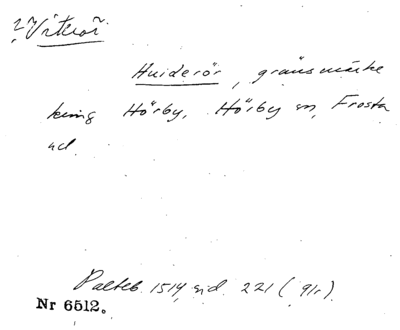 ? Viteör
Huiderör, gränsmärke
kring Hörby, Hörby sn, Frosta
hd.
Palteb. 1514, sid. 221 (91r).
Nr 6512.